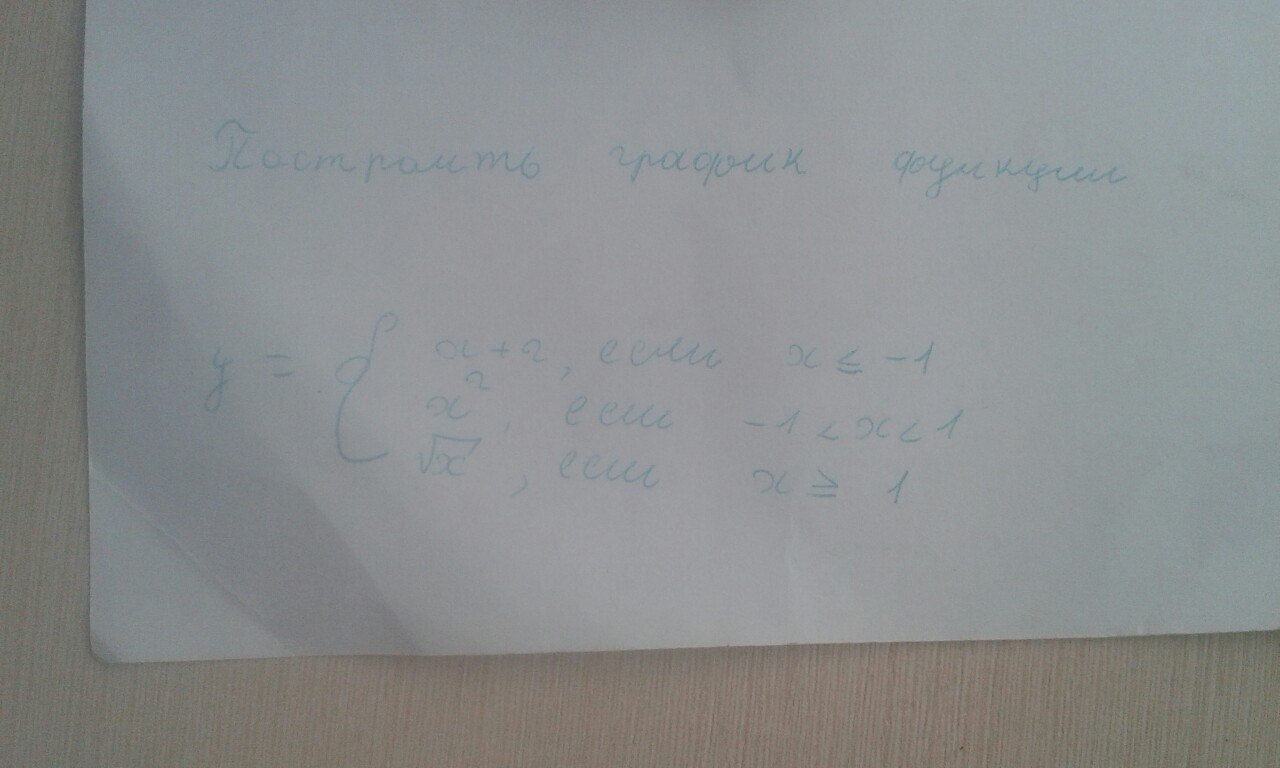 Построить график функции
y = { x+2, если x ≤ -1
x², если -1 < x < 1
√x, если x ≥ 1